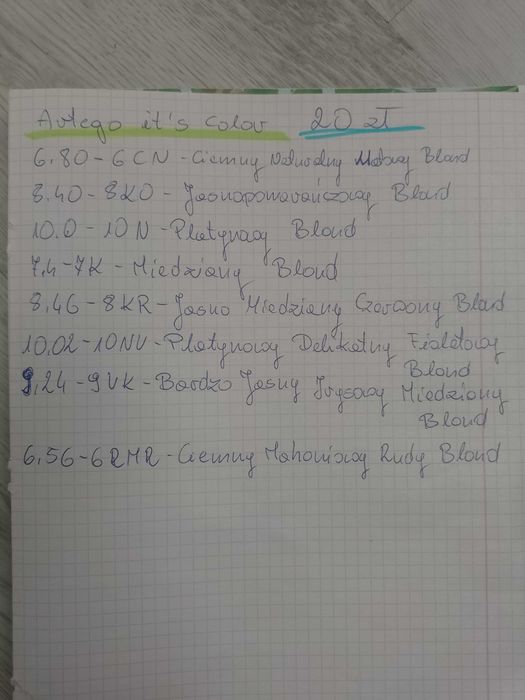 Artego it's color 20 zł
6.80-6CN - Ciemny Naturalny Matowy Blond
8.40-8KO - Jasnopomarańczowy Blond
10.0-10N - Platynowy Blond
7.4-7K - Miedziany Blond
8.46-8KR - Jasno Miedziany Czerwony Blond
10.02-10NV - Platynowy Delikatny Fioletowy
Blond
9.24-9VK - Bardzo Jasny Irysowy Miedziany
Blond
6.56-6RMR - Ciemny Mahoniowy Rudy Blond